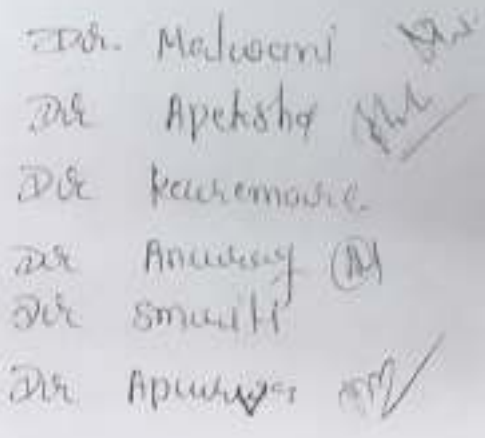 Dr. Malwani
Dr Apeksha
Dr
Dr Anurag
Dr Smriti
Dr Apurva